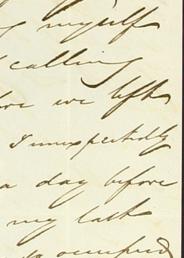 myself
calling
we left
I unexpectedly
a day before
my last
so occupied